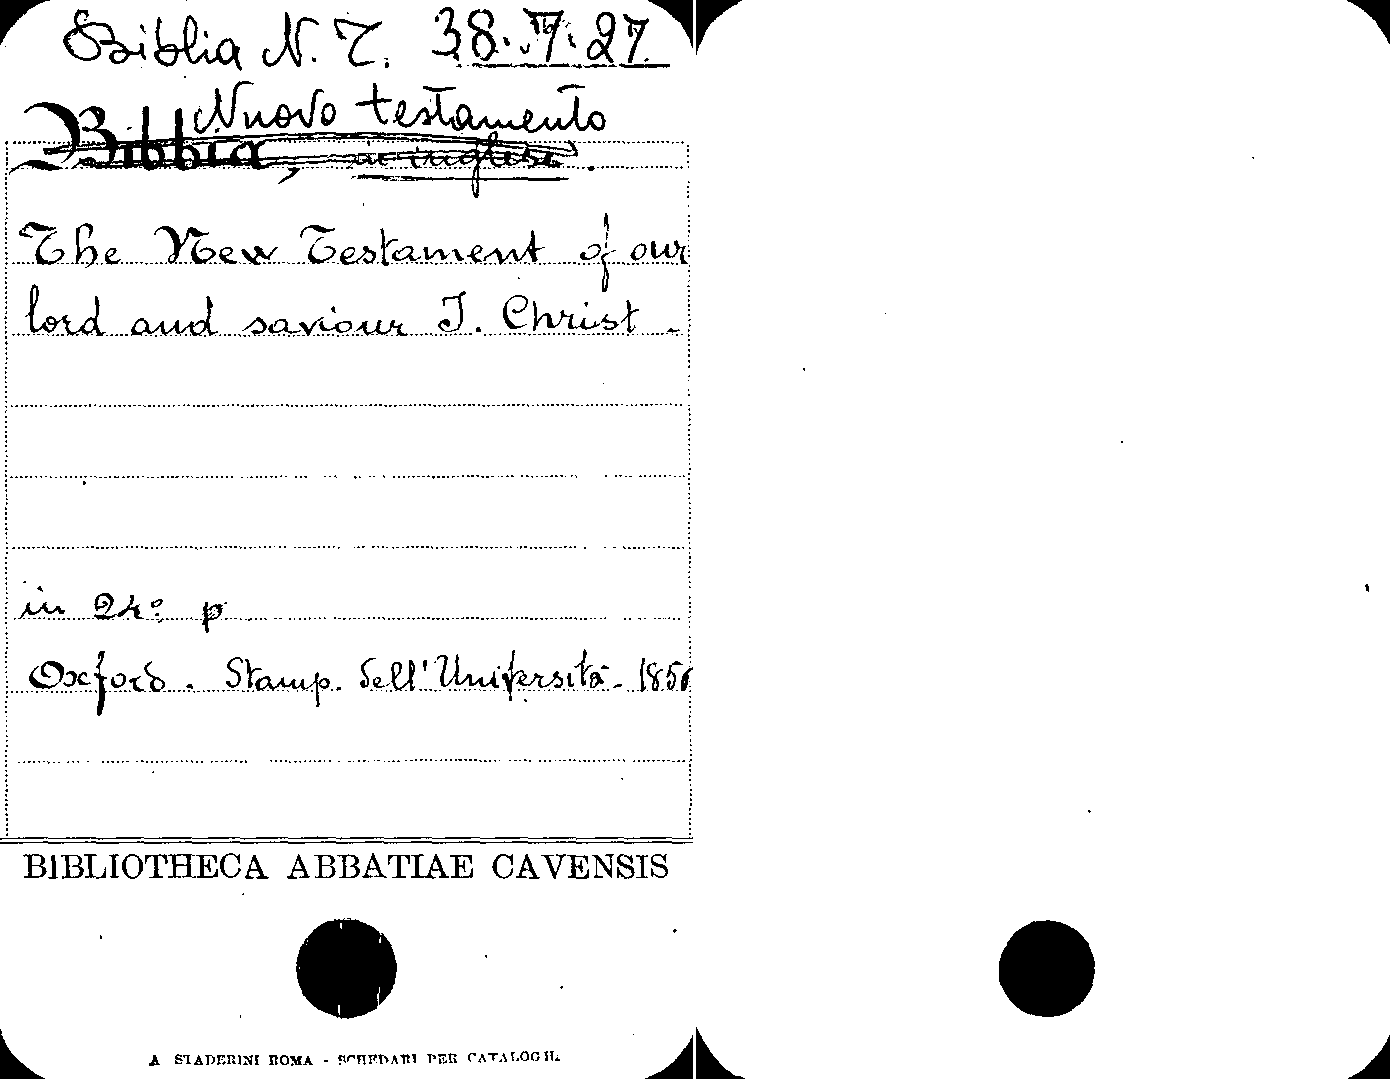 Biblia N. T. 38. V. 27
Nuovo testamento
Bibbia, in inglese.
The New Testament of our
lord and saviour J. Christ -
in 24° p
Oxford. Stamp. dell'Università - 
BIBLIOTHECA ABBATIAE CAVENSIS
A STADERINI ROMA - SCHEDARI PER CATALOGHI